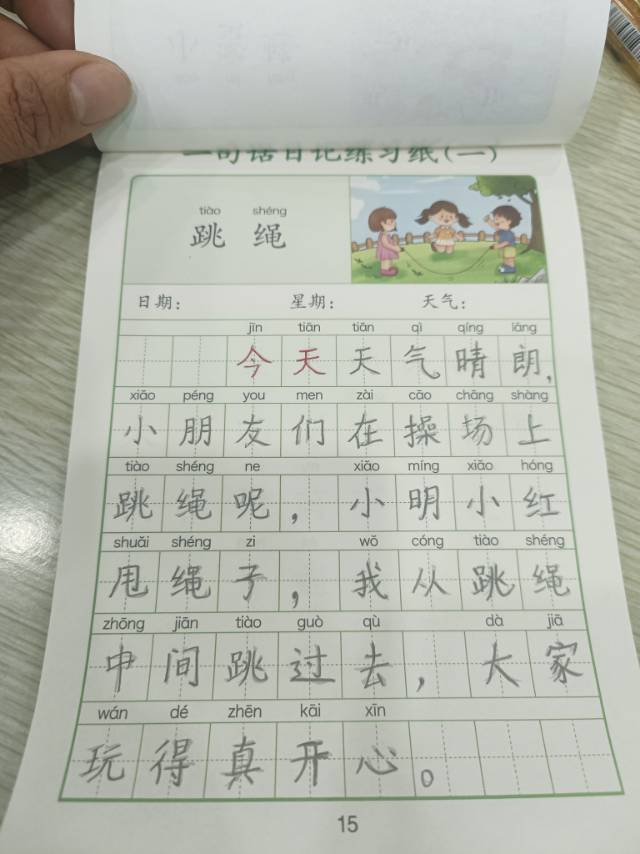 一句话日记练习纸(一)
tiào shéng
跳 绳
日期: 星期: 天气:
jīn tiān tiān qì qíng lǎng
今天天气晴朗,
xiǎo péng you men zài cāo chǎng shàng
小朋友们在操场上
tiào shéng ne xiǎo míng xiǎo hóng
跳绳呢,小明小红
shuǎi shéng zi wǒ cóng tiào shéng
甩绳子,我从跳绳
zhōng jiān tiào guò qù dà jiā
中间跳过去,大家
wán dé zhēn kāi xīn
玩得真开心。
15